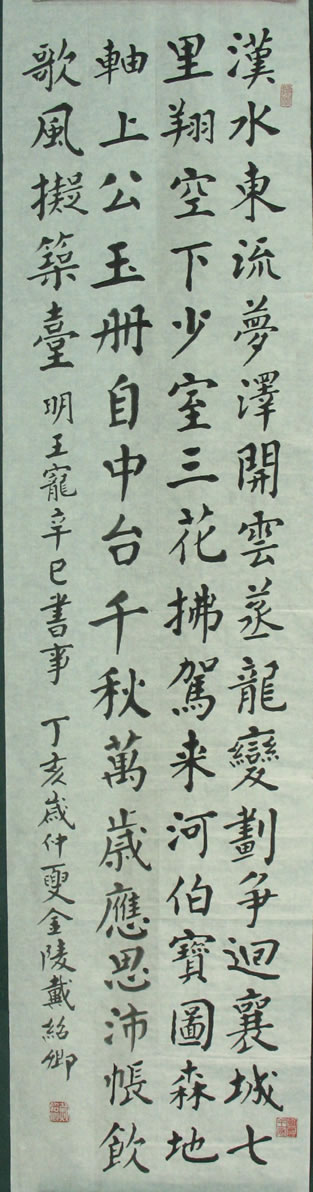 漢水東流夢澤開雲蒸龍變劃爭迴襄城七
里翔空下少室三花拂駕来河伯寶圖森地
軸上公玉冊自中台千秋萬歲應思沛帳飲
歌風擬築臺 明王寵辛巳書事 丁亥歲仲夏金陵戴紹卿